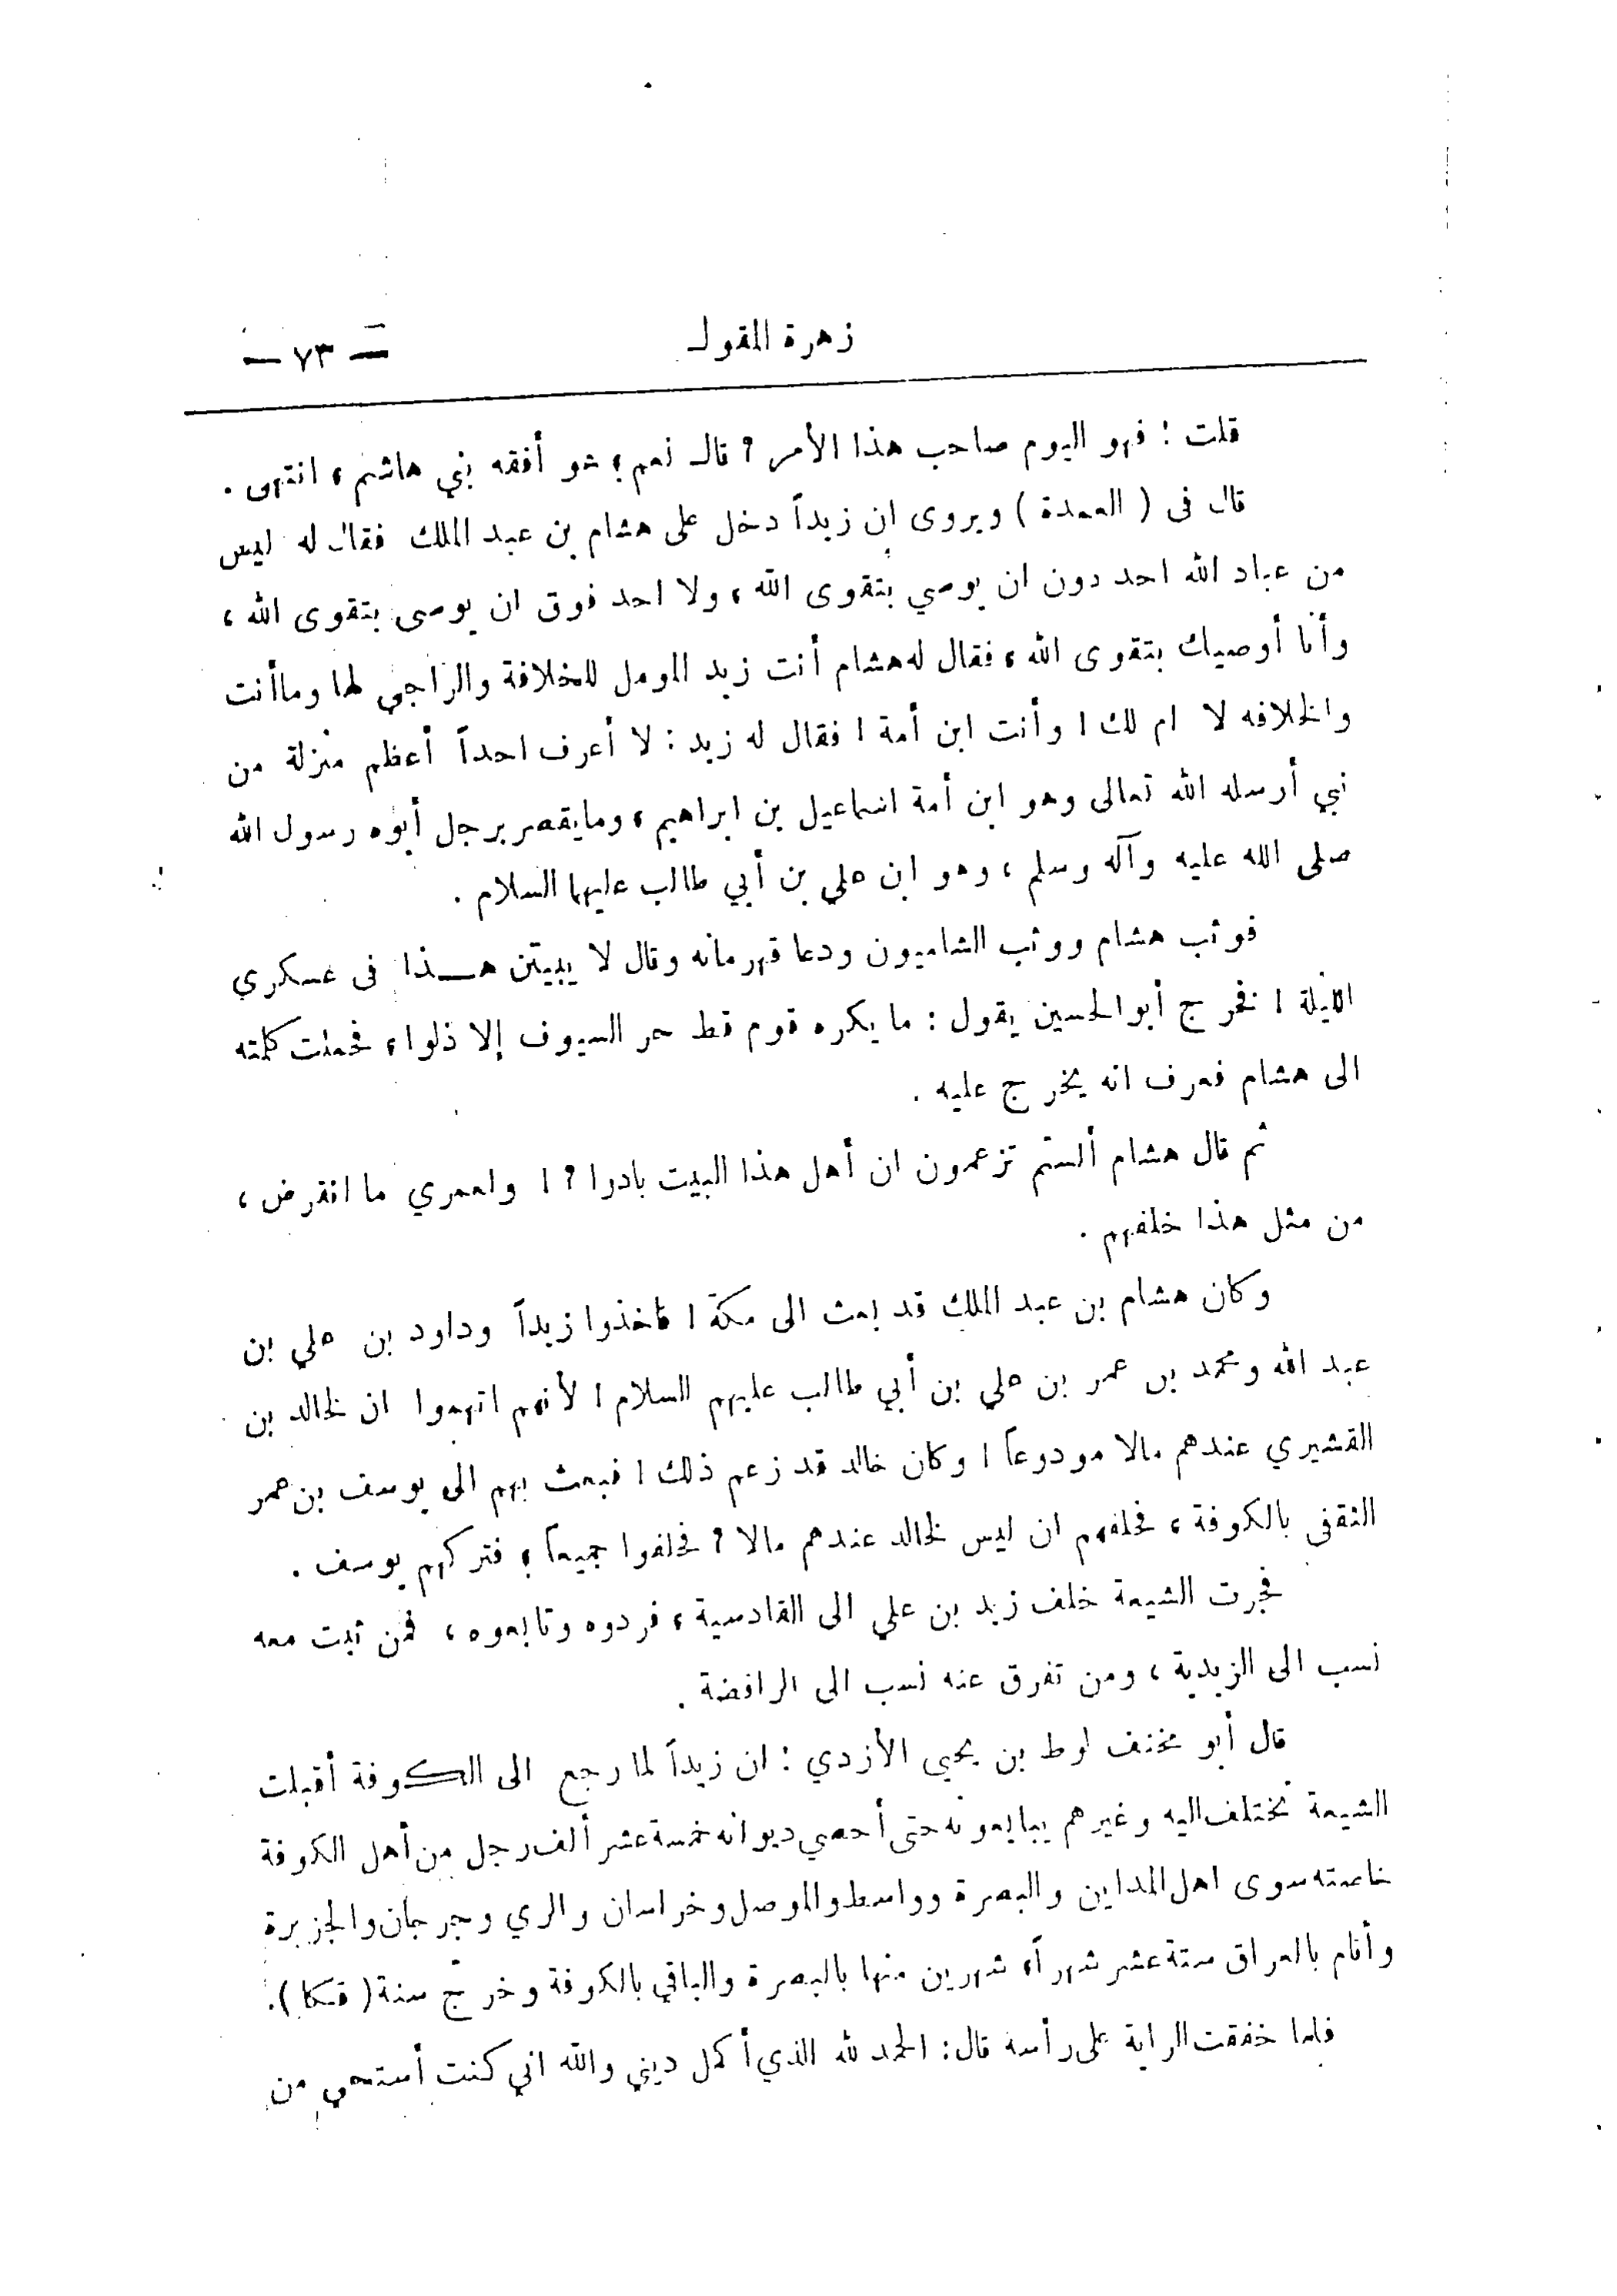 زهرة المقول
— ٧٣ —
قلت : فهو اليوم صاحب هذا الأمر ? قال نعم ، هو أفقه بني هاشم ، انتهى .
قال في ( العمدة ) ويروى ان زيداً دخل على هشام بن عبد الملك فقال له ليس
من عباد الله احد دون ان يوصي بتقوى الله ، ولا احد فوق ان يوصى بتقوى الله ،
وأنا أوصيك بتقوى الله ، فقال له هشام أنت زيد المومل للخلافة والراجي لها وما أنت
والخلافه لا ام لك ! وأنت ابن أمة ! فقال له زيد : لا أعرف احداً أعظم منزلة من
نبي أرسله الله تعالى وهو ابن أمة اسماعيل بن ابراهيم ، وما يقصر برجل أبوه رسول الله
صلى الله عليه وآله وسلم ، وهو ابن علي بن أبي طالب عليهما السلام .
فوثب هشام ووثب الشاميون ودعا قهرمانه وقال لا يبيتن هـــذا في عسكري
الليلة ! فخرج أبو الحسين يقول : ما يكره قوم قط حر السيوف إلا ذلوا ، فحملت كلمته
الى هشام فعرف انه يخرج عليه .
ثم قال هشام ألستم تزعمون ان أهل هذا البيت بادوا ? ! ولعمري ما انقرض ،
من مثل هذا خلفهم .
وكان هشام بن عبد الملك قد بعث الى مكة ! فأخذوا زيداً وداود بن علي بن
عبد الله ومحمد بن عمر بن علي بن أبي طالب عليهم السلام ! لأنهم اتهموا ان لخالد بن
القشيري عندهم مالا مودوعاً ! وكان خالد قد زعم ذلك ! فبعث بهم الى يوسف بن عمر
الثقفي بالكوفة ، فحلفهم ان ليس لخالد عندهم مالا ? فحلفوا جميعاً ، فتركهم يوسف .
فجرت الشيعة خلف زيد بن علي الى القادسية ، فردوه وتابعوه ، فمن ثبت معه
نسب الى الزيدية ، ومن تفرق عنه نسب الى الرافضة .
قال أبو مخنف لوط بن يحيى الأزدي : ان زيداً لما رجع الى الكوفة أقبلت
الشيعة تختلف اليه وغيرهم يبايعونه حتى أحصي ديوانه خمسة عشر ألف رجل من أهل الكوفة
خاصته سوى اهل المداين والبصرة وواسط والموصل وخراسان والري وجرجان والجزيرة
وأقام بالعراق ستة عشر شهراً ، شهرين منها بالبصرة والباقي بالكوفة وخرج سنة ( قكا ) .
فلما خفقت الراية على رأسه قال : الحمد لله الذي أكمل ديني والله اني كنت أستحي من